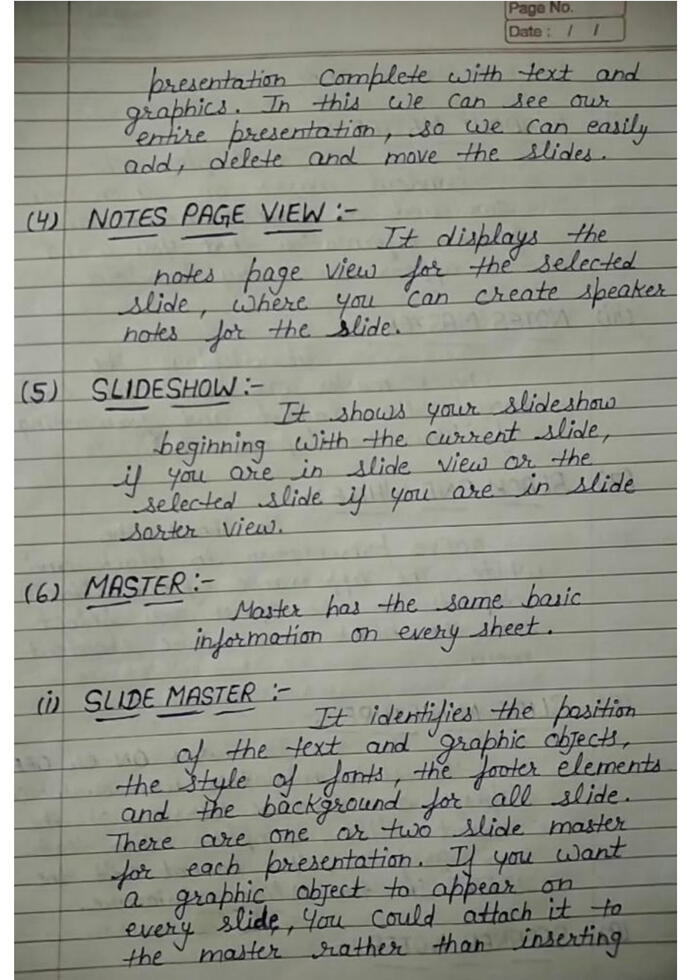 Page No.
Date : / /
presentation complete with text and
graphics. In this we can see our
entire presentation, so we can easily
add, delete and move the slides.
(4) NOTES PAGE VIEW :-
It displays the
notes page view for the selected
slide, where you can create speaker
notes for the slide.
(5) SLIDESHOW :-
It shows your slideshow
beginning with the current slide,
if you are in slide view or the
selected slide if you are in slide
sorter view.
(6) MASTER :-
Master has the same basic
information on every sheet.
(i) SLIDE MASTER :-
It identifies the position
of the text and graphic objects,
the style of fonts, the footer elements
and the background for all slide.
There are one or two slide master
for each presentation. If you want
a graphic object to appear on
every slide, you could attach it to
the master rather than inserting